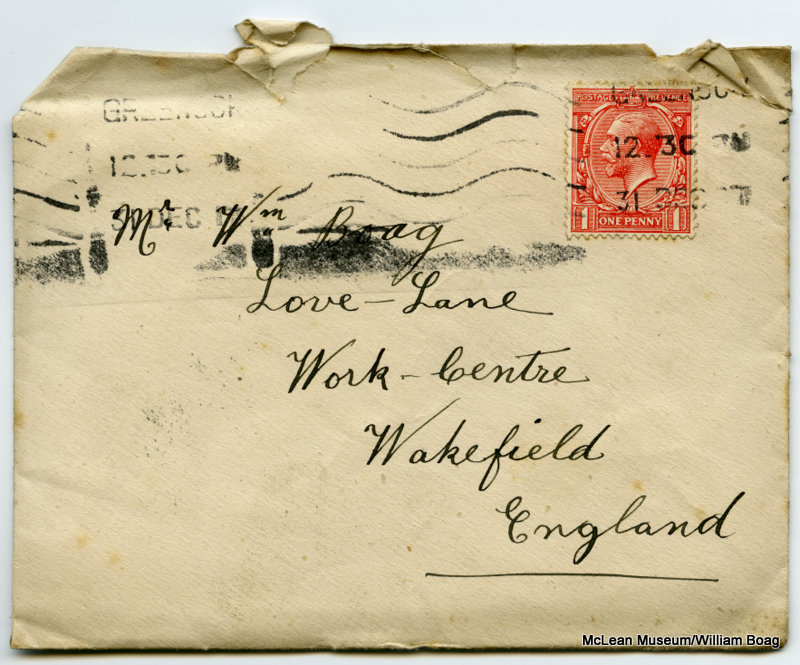 GREENOCK
12.30 PM
DEC
POSTAGE REVENUE
12.30 PM
31 DEC
1 ONE PENNY 1
Mr Wm Boag
Love-Lane
Work-Centre
Wakefield
England
McLean Museum/William Boag